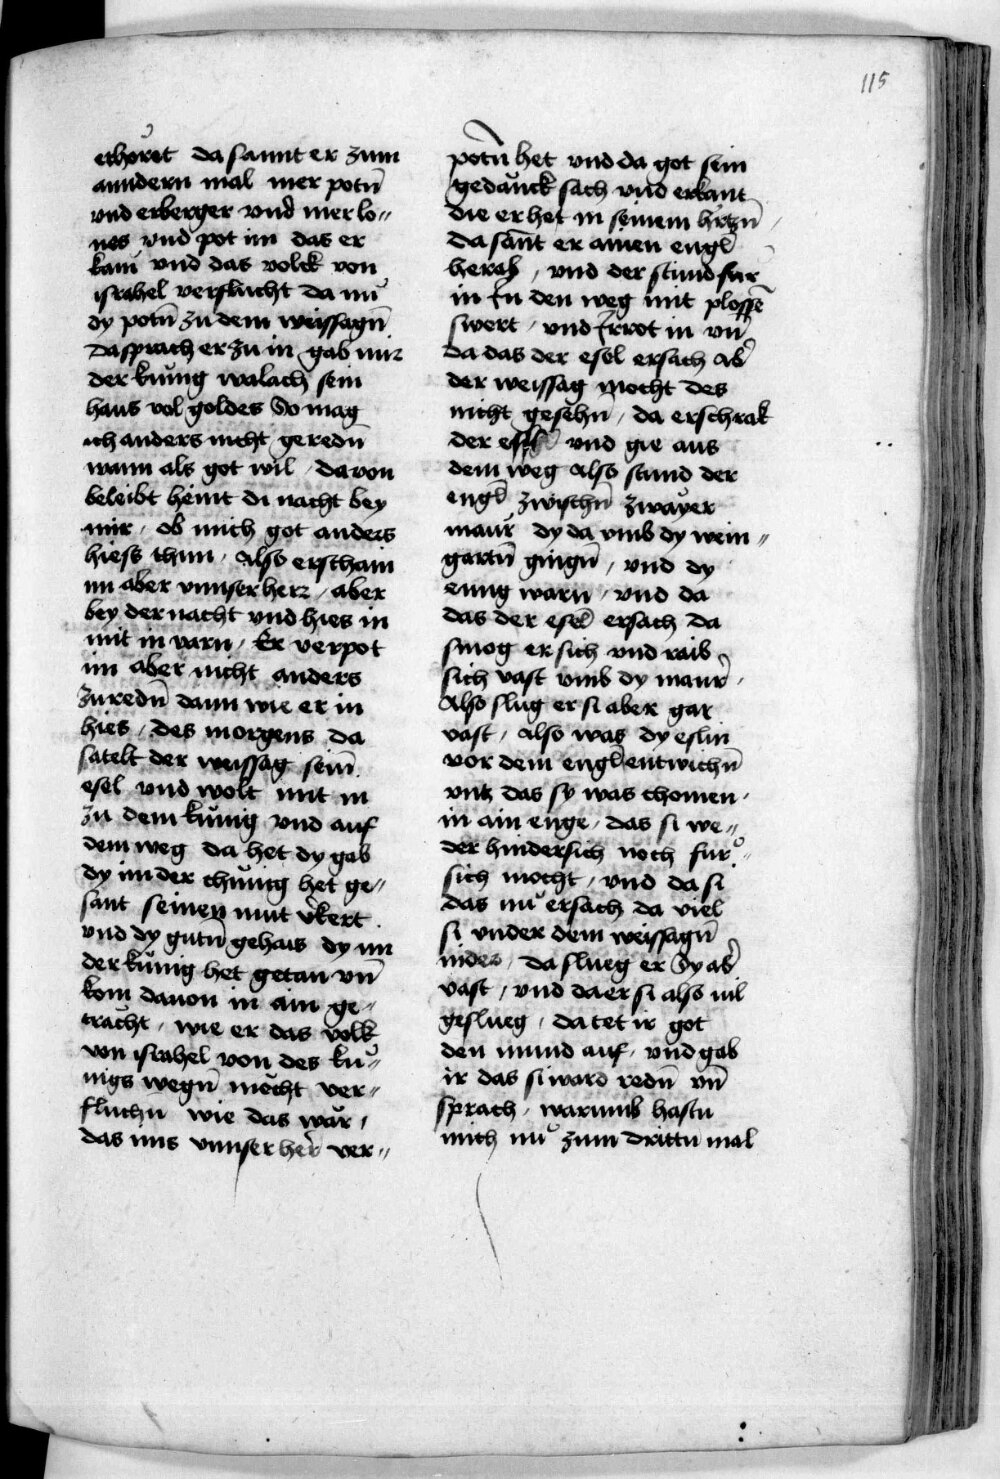 115
erhoret da sannt er zum
anndern mal mer potn̄
vnd erberger vnd mer lo„
nes vnd pot im das er
kam vnd das volck von
israhel verflucht da nuͦ
dy potn̄ zu dem weissagn̄
Da sprach er zu in gab mir
der kuͤnig walach sein
haus vol goldes So mag
ich anders nicht geredn̄
wann als got wil / da von
beleibt heint di nacht bey
mir / ob mich got anders
hiess thun / Also erschain
im aber vnnser herr / aber
bey der nacht vnd hies in
mit in varn / Er verpot
im aber nicht anders
zu redn̄ dann wie er in
hies / des morgens da
satelt der weissag sein̄
esel vnd wolt mit in
zu dem kuͤnig vnd auf
dem weg da het dy gab
dy im der chuͤnig het ge„
sant seinen mut v̓kert
vnd dy gutn̄ gehais dy im
der kuͤnig het getan vn̄
kom dauon in ain ge„
tracht / wie er das volk
von israhel von des kuͤ„
nigs wegn̄ moͤcht ver„
fluchn̄ wie das waͤr /
das ims vnnser her̓ ver„
potn̄ het vnd da got sein
gedaͤnck sach vnd erkant
die er het in seinem hr̓tzn̄ /
Da san̄t er ainen engl̄
herab / vnd der stund fur
in Jn den weg mit plossē
swert / vnd Jrrot in vn̄
da das der esel ersach Ab̓
der weissag mocht des
nicht gesehn̄ / da erschrak
der esel vnd gie aus
dem weg Also stund der
engl̄ zwischn̄ zwayer
maur̓ dy da vmb dy wein„
gartn̄ gingn̄ / vnd dy
enng warn̄ / vnd da
das der esel̄ ersach da
smog er sich vnd raib
sich vast vmb dy maur̓ /
Also slug er si aber gar
vast / Also was dy eslin
vor dem engl̄ entwichn̄
vntz das sy was chomen /
in ain enge / das si we„
der hindersich noch fur„
sich mocht / vnd da si
das nuͦ ersach da viel
si vnder dem weissagn̄
nider / da slueg er Sy ab̓
vast / vnd da er si also vil
geslueg / da tet ir got
den mund auf / vnd gab
ir das si ward redn̄ vn̄
sprach / warumb hastu
mich nuͦ zum drittn̄ mal